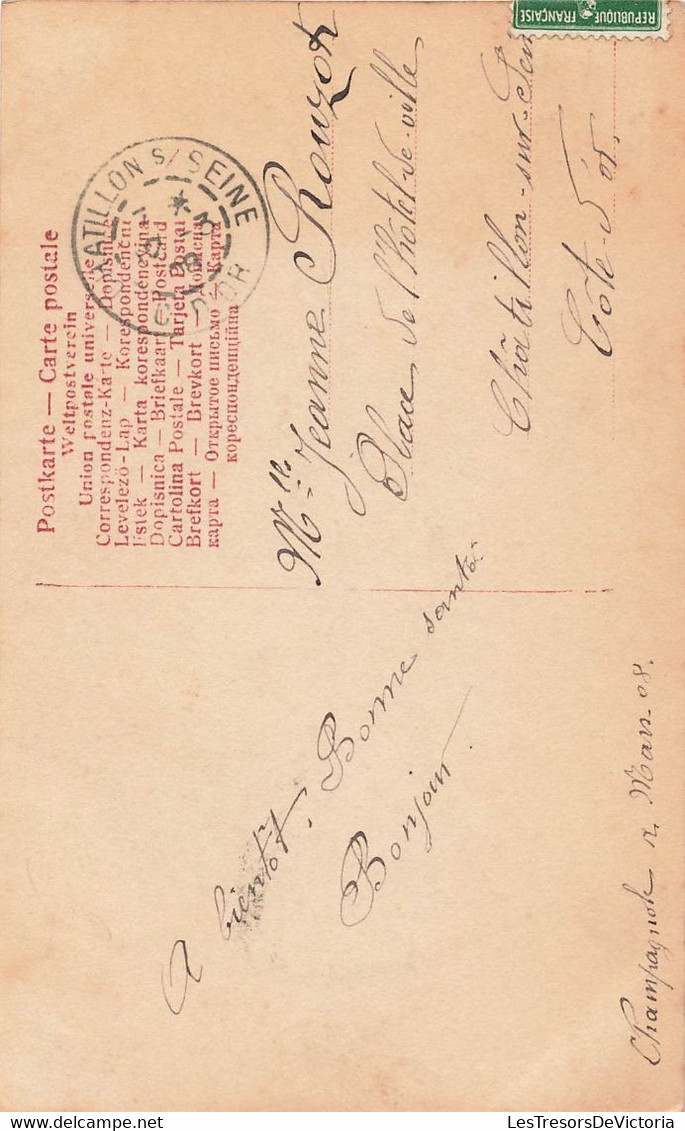 REPUBLIQUE
FRANÇAISE
Postkarte — Carte postale
Weltpostverein
Union postale universelle
Correspondenz-Karte — Dopisnice
Levelező-Lap — Korespondenční
lístek — Karta korespondencyjna
Dopisnica — Briefkaart — Postcard
Cartolina Postale — Tarjeta Postal
Brefkort — Brevkort — Дописна
карта — Открытое письмо — Карта
кореспонденційна
CHATILLON S/ SEINE
COTE D'OR
Mlle Jeanne Rouzot
Place de l'Hôtel-de-ville
Châtillon-sur-Sein
Côte-d'or.
A bientôt. Bonne santé.
Bonjour.
Champagnole Mars 08.
LesTresorsDeVictoria